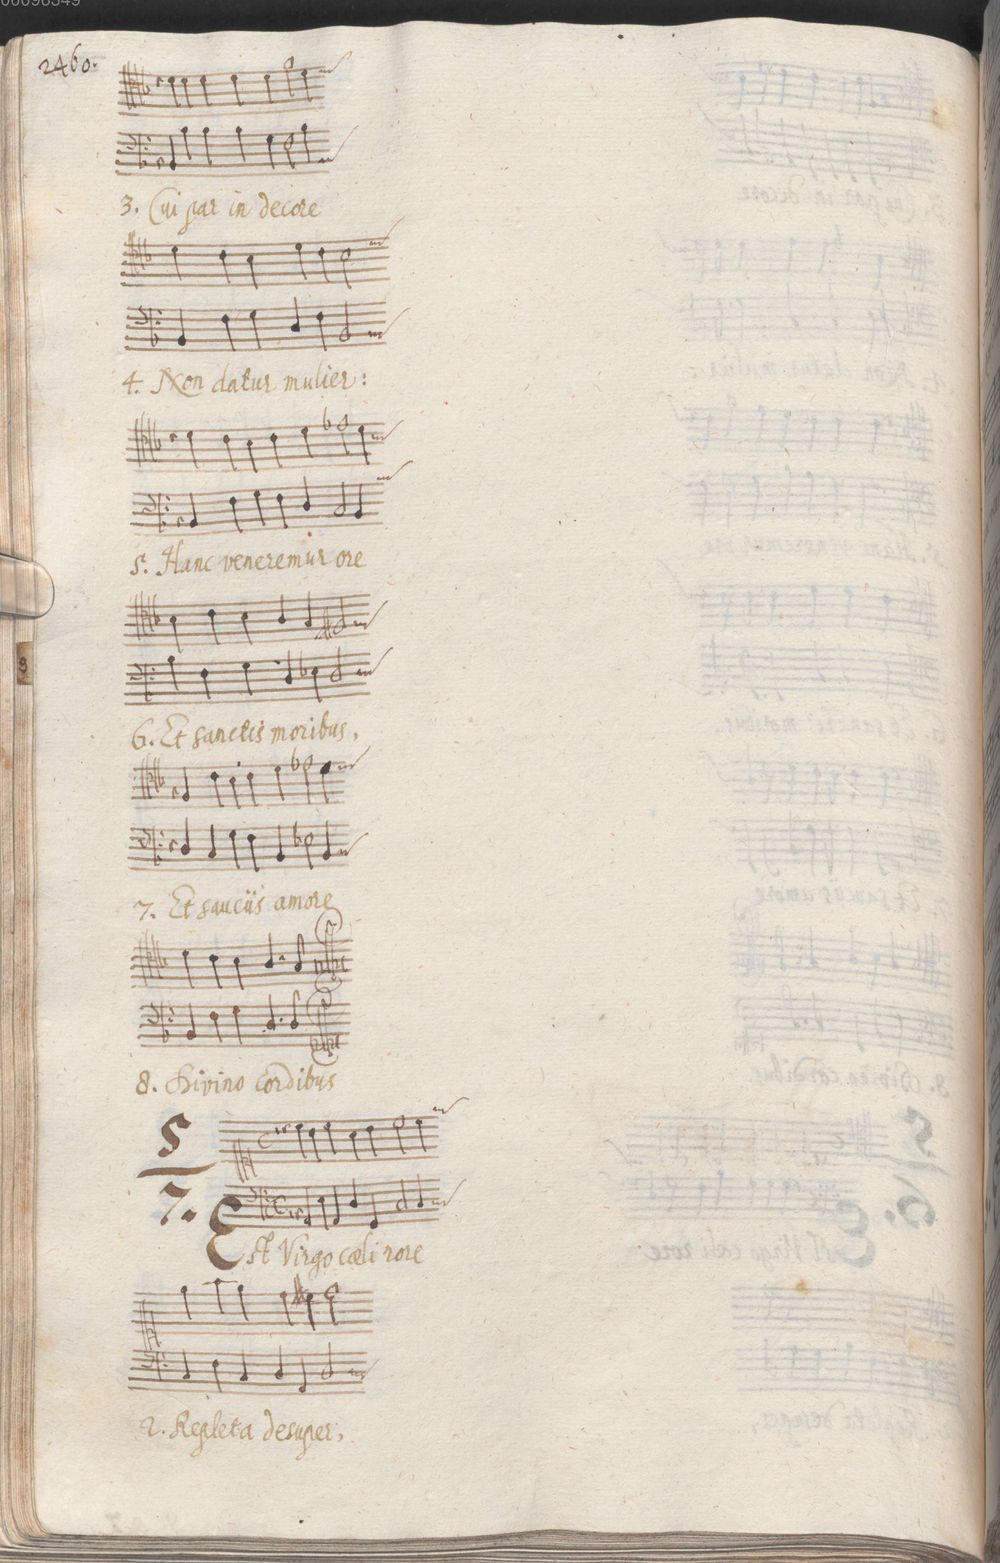 00096349
2460.
3. Cui par in decore
4. Non datur mulier:
5. Hanc veneremur ore
6. Et sanctis moribus,
7. Et sauciis amore
8. Divino cordibus
5
7. Est Virgo cæli rore
2. Repleta desuper,